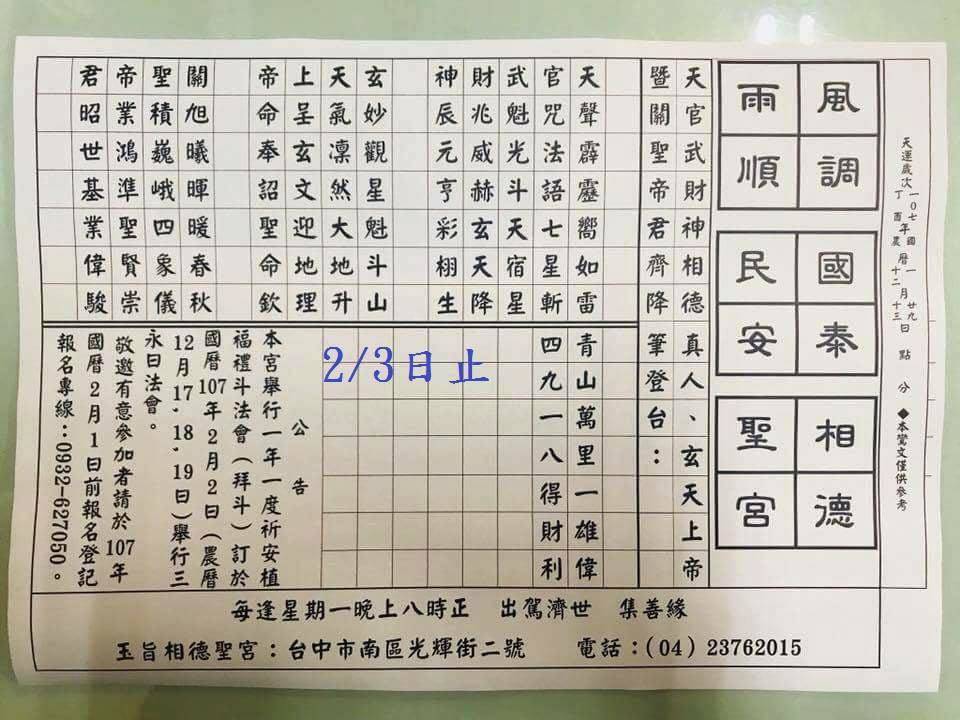 天運歲次
一０七年國
丁酉年農
曆
一月廿九
十二月十三
日　點　分　◆本鸞文僅供參考
風調
雨順
國泰
民安
相德
聖宮
天官武財神相德真人、玄天上帝
暨關聖帝君齊降筆登台：
天聲霹靂嚮如雷青山萬里一雄偉
官咒法語七星斬四九一八得財利
武魁光斗天宿星
財兆威赫玄天降
神辰元亨彩栩生
玄妙觀星魁斗山
天氣凜然大地升
上呈玄文迎地理
帝命奉詔聖命欽
關旭曦暉暖春秋
聖積巍峨四象儀
帝業鴻準聖賢崇
君昭世基業偉駿
2/3日止
公告
本宮舉行一年一度祈安植
福禮斗法會（拜斗）訂於
國曆107年2月2日（農曆
12月17.18.19日）舉行三
永日法會。
敬邀有意參加者請於107年
國曆2月1日前報名登記
報名專線：0932-627050。
每逢星期一晚上八時正　出駕濟世　集善緣
玉旨相德聖宮：台中市南區光輝街二號　電話：(04) 23762015